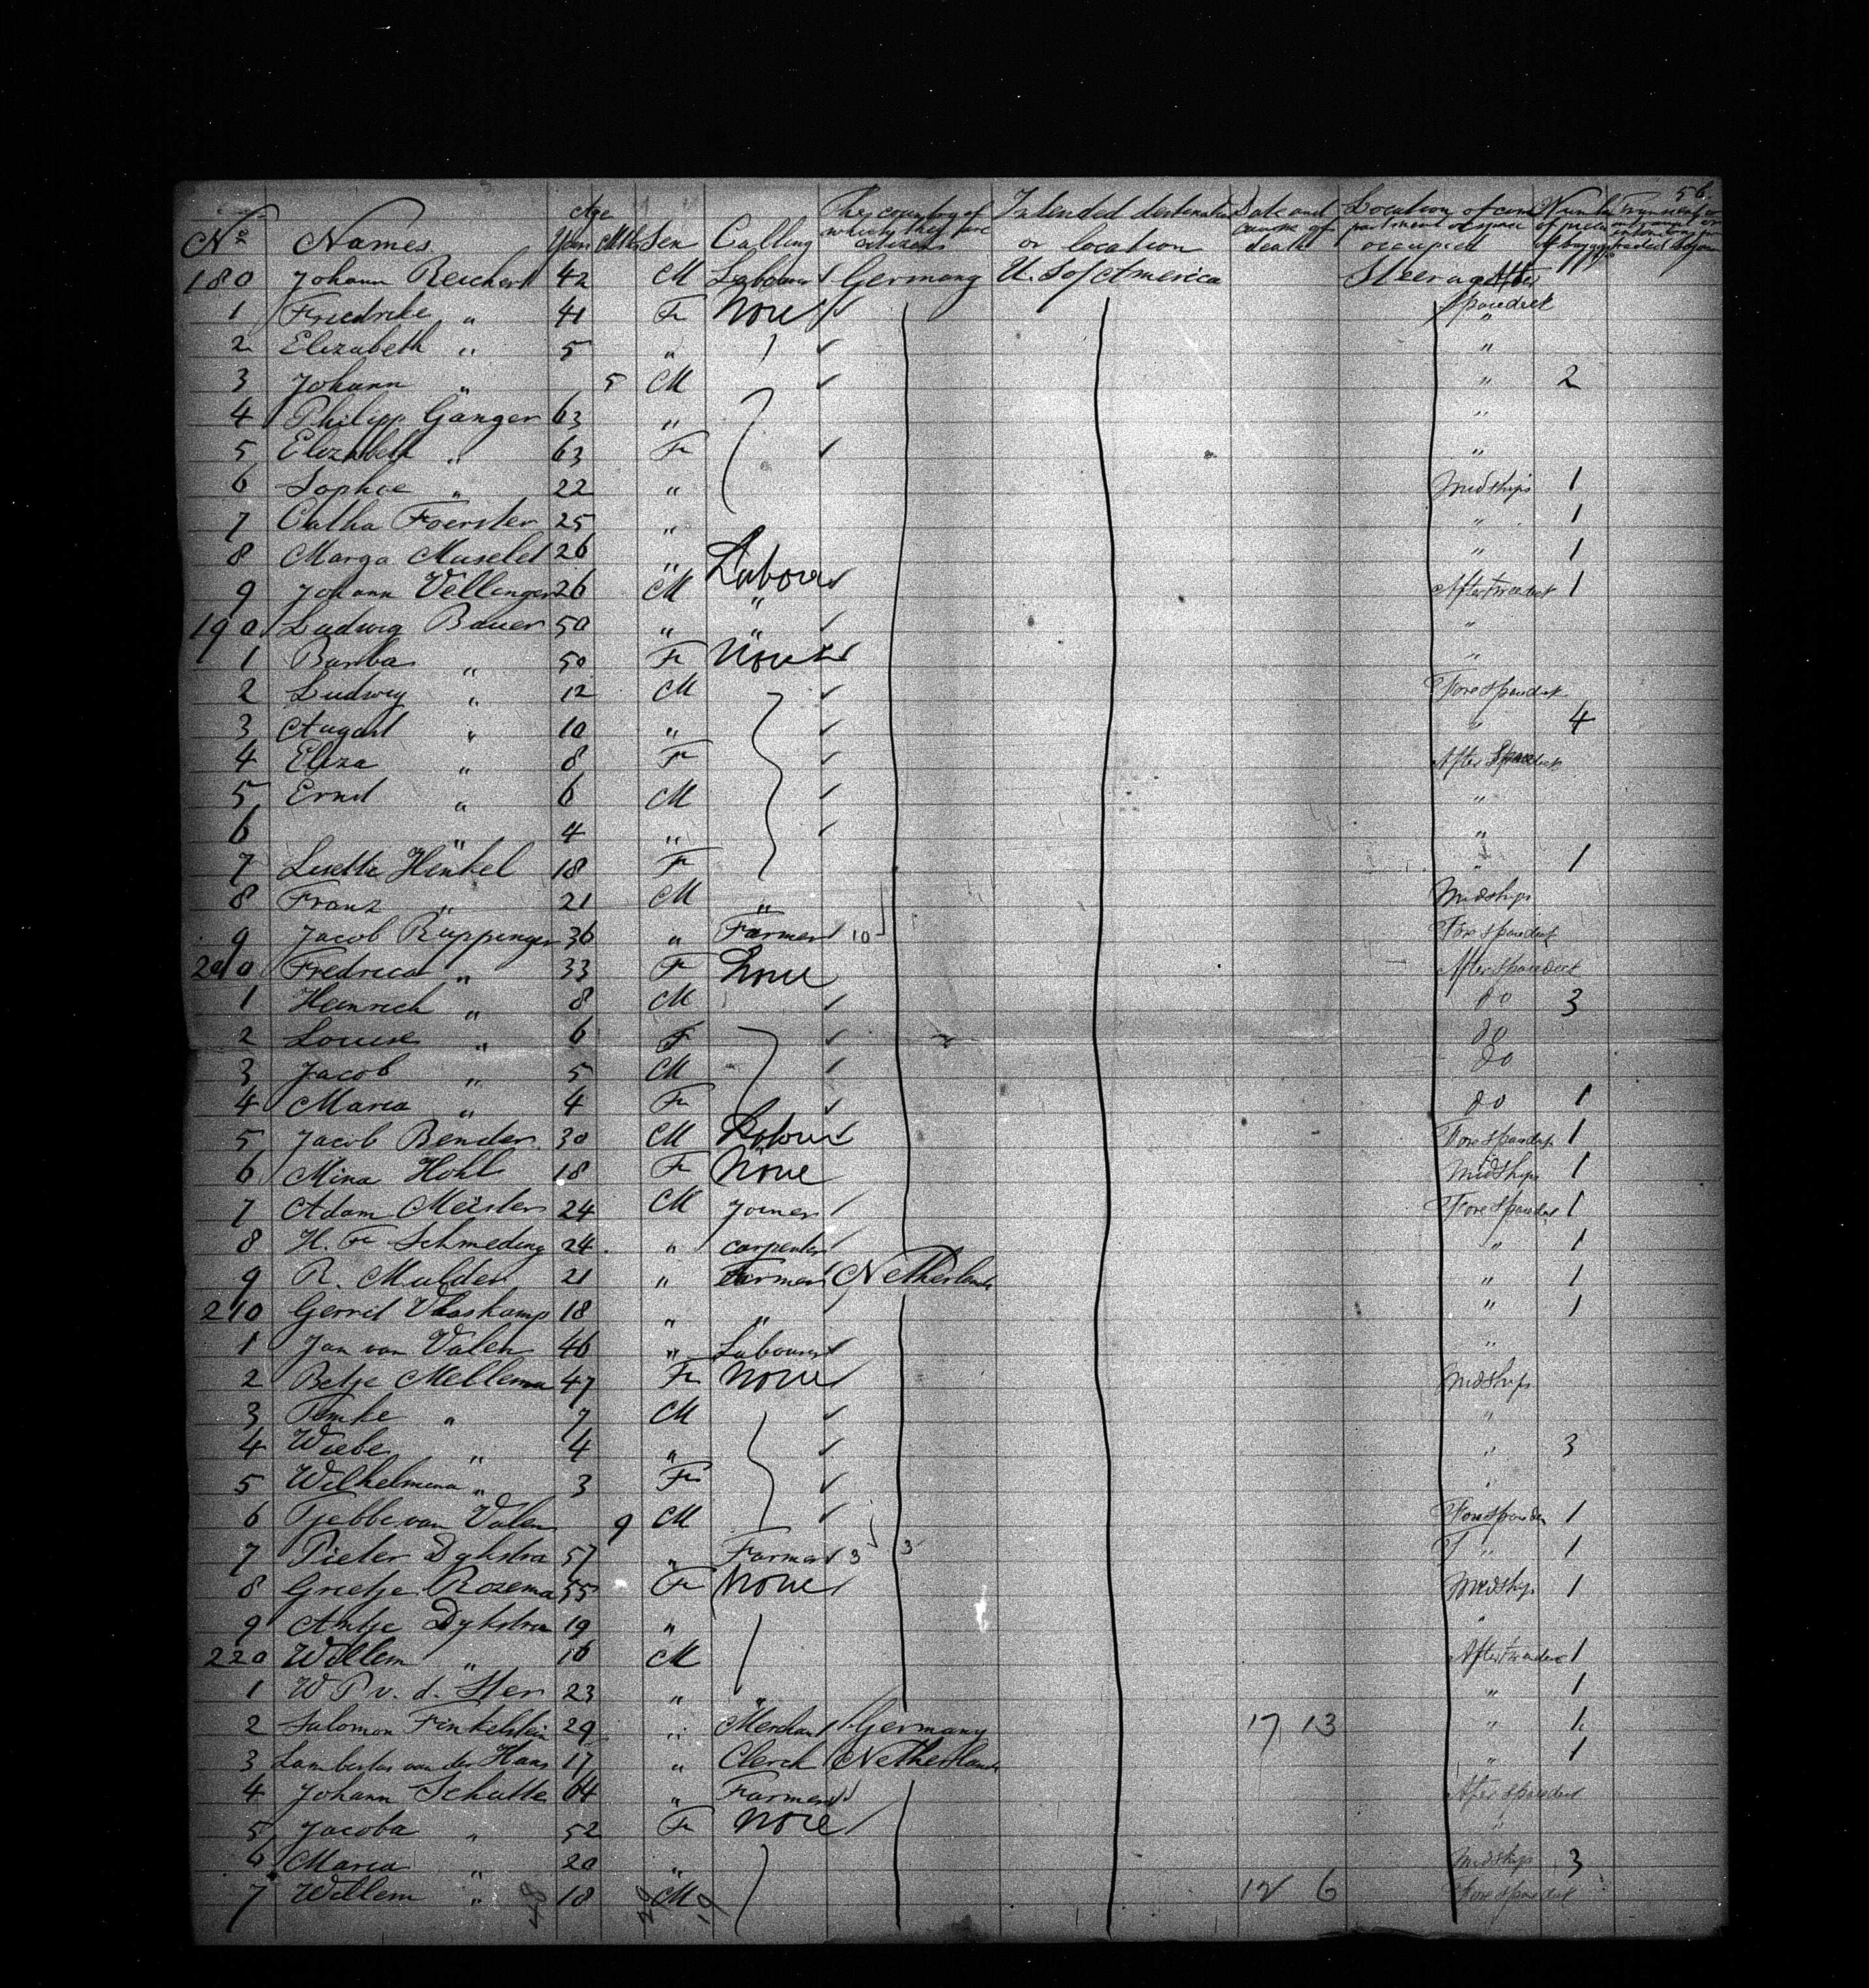 56
No Names Age Years Mths Sex Calling The country of which they are citizens Intended destination or location Date and cause of death Location of compartment or space occupied Number of pieces of baggage
180 Johann Reichert 42 M Labourer Germany U. S. of America Steerage After Spardeck
1 Friedrike " 41 F None "
2 Elizabeth " 5 " "
3 Johann " 5 M " 2
4 Philipp Ganger 63 " "
5 Elizabeth " 63 F "
6 Sophie " 22 " Midships 1
7 Catha Foerster 25 " " 1
8 Marga 26 " " 1
9 Johann Vellinger 26 M Labourer " 1
190 Ludwig Bauer 50 " " "
1 Barba " 50 F None "
2 Ludwig " 12 M Fore Spardeck
3 August " 10 " " 4
4 Eliza " 8 F After Spardeck
5 Ernst " 6 M "
6 " 4 " "
7 Lisette Henkel 18 F " 1
8 Franz " 21 M " Midships
9 Jacob Ruppinger 36 " Farmer 10 Fore Spardeck
200 Fredrica " 33 F None After Spardeck
1 Heinrich " 8 M do 3
2 Louise " 6 F do
3 Jacob " 5 M do
4 Maria " 4 F do 1
5 Jacob Bender 30 M Labourer Fore Spardeck 1
6 Mina Hohl 18 F None Midships 1
7 Adam Meister 24 M Joiner Fore Spardeck 1
8 H. Fr Schmeding 24 " carpenter " 1
9 R. Mulder 21 " Farmer Netherlands " 1
210 Gerrit Vlaskamp 18 " " " 1
1 Jan van Valen 46 " Labourer "
2 Betje Mellema 47 F None Midships
3 Femke " 7 M "
4 Wiebe " 4 " " 3
5 Wilhelmina " 3 F "
6 Tjebbe van Valen 9 M Fore Spardeck 1
7 Pieter Dykstra 57 " Farmer 3 3 " 1
8 Grietje Rozema 55 F None Midships 1
9 Antje Dykstra 19 " "
220 Willem " 16 M 1
1 W P v. d. Ster 23 " " " 1
2 Salomon Finkelstein 29 " Merchant Germany 17 13 " 1
3 Lambertus van der Haas 17 " Clerck Netherlands " 1
4 Johann Schutte 64 " Farmer After Spardeck
5 Jacoba " 52 F None "
6 Maria " 20 " Midships 3
7 Willem " 18 M 12 6 Fore Spardeck